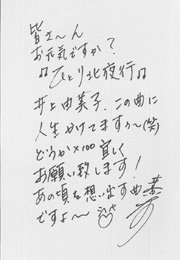 皆さ〜ん
お元気ですか?
♫ひとり北夜行♫
井上由美子、この曲に
人生かけてますぅ〜(笑)
どうか×100宜しく
お願い致します!
あの頃を想い出す曲
ですよ〜